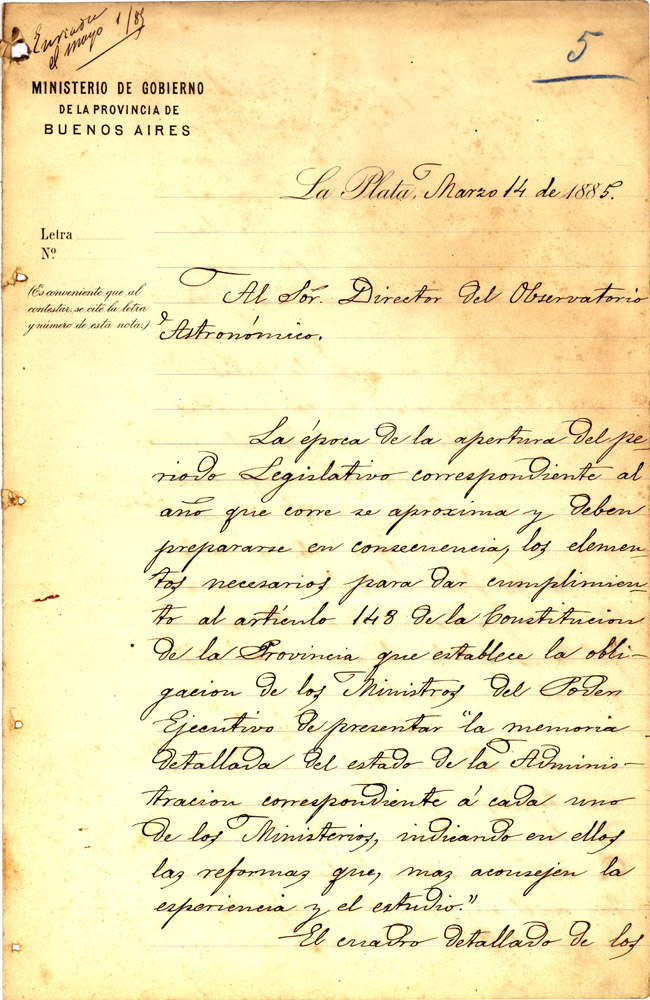 Enviada
el mayo 1/85
5
MINISTERIO DE GOBIERNO
DE LA PROVINCIA DE
BUENOS AIRES
La Plata, Marzo 14 de 1885.
Letra
Nº
(Es conveniente que al
contestar, se cite la letra
y número de esta nota.)
Al Sór. Director del Observatorio
Astronómico.
La época de la apertura del pe-
riodo Legislativo correspondiente al
año que corre se aproxima y deben
prepararse en consecuencia, los elemen-
tos necesarios para dar cumplimien-
to al artículo 148 de la Constitucion
de la Provincia que establece la obli-
gacion de los Ministros del Poder
Ejecutivo de presentar "la memoria
detallada del estado de la Adminis-
tracion correspondiente á cada uno
de los Ministerios, indicando en ellos
las reformas que, mas aconsejen la
esperiencia y el estudio."
El cuadro detallado de los